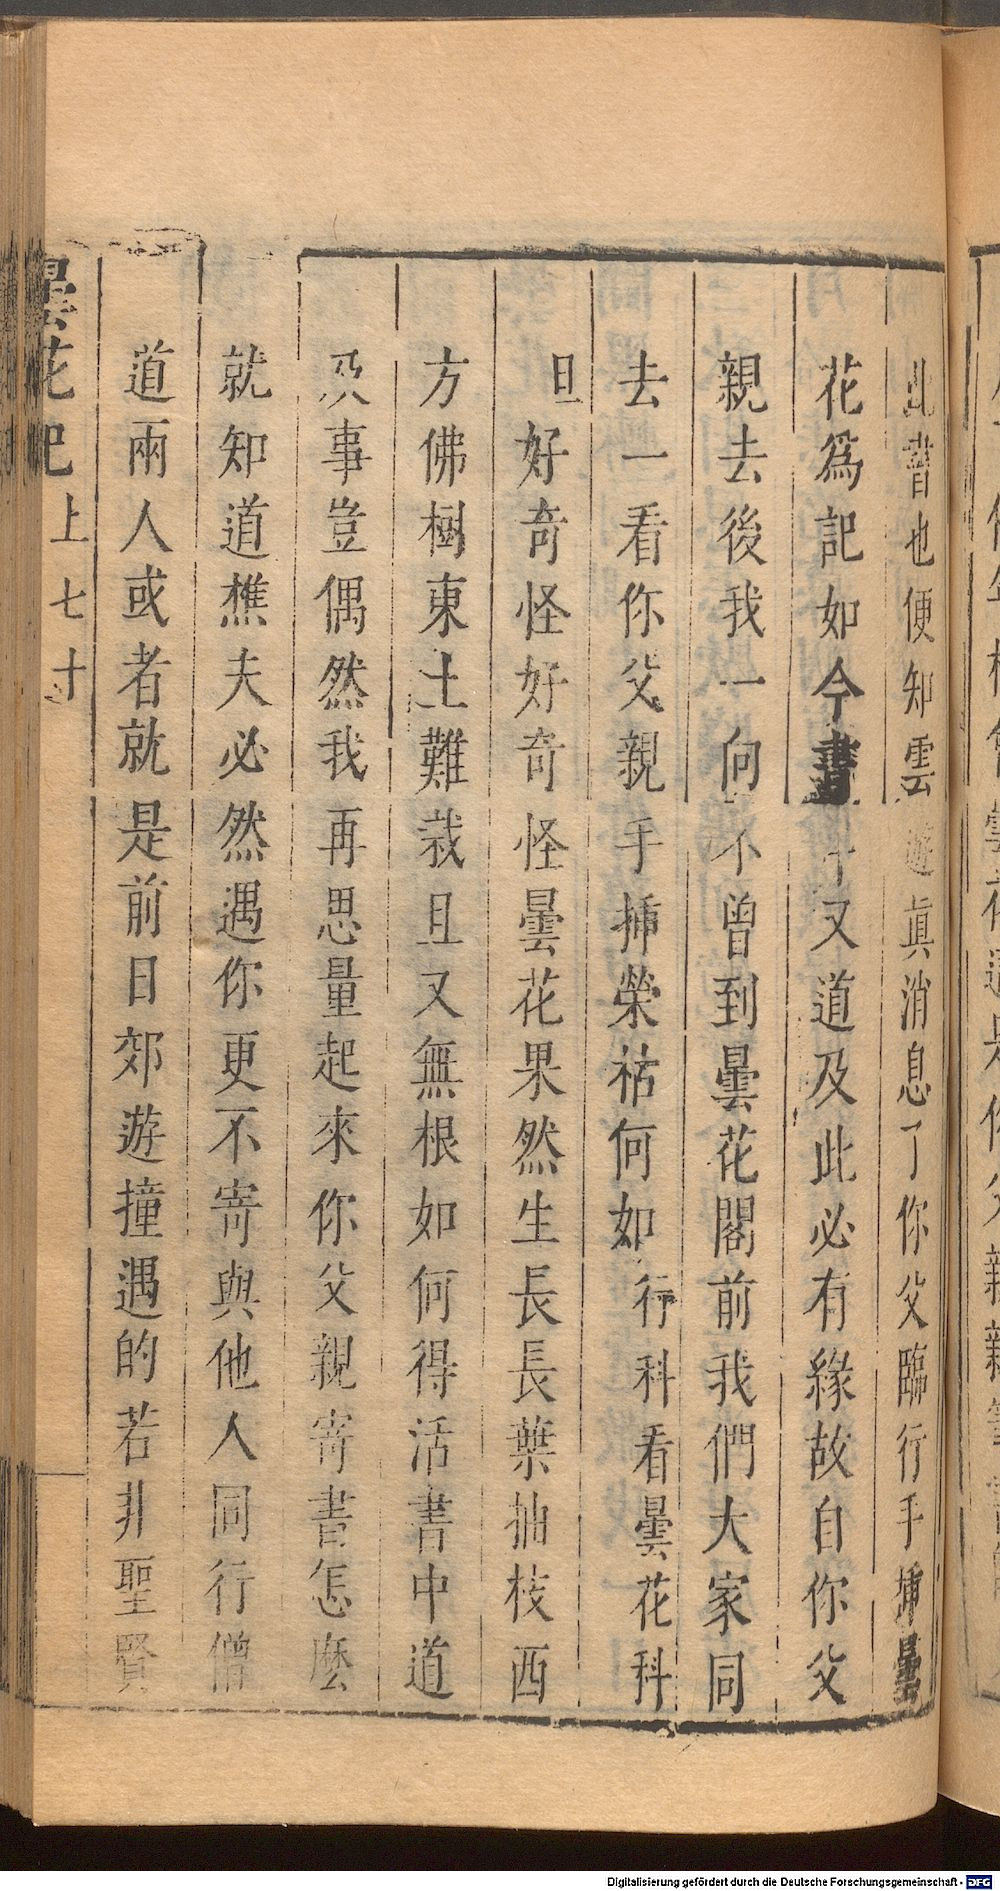 此書也便知雲遊真消息了你父臨行手揷曇
花爲記如今書中又道及此必有緣故自你父
親去後我一向不曾到曇花閣前我們大家同
去一看你父親手揷榮祜何如行科看曇花科
旦好奇怪好奇怪曇花果然生長長葉抽枝西
方佛樹東土難栽且又無根如何得活書中道
及事豈偶然我再思量起來你父親寄書怎麽
就知道樵夫必然遇你更不寄與他人同行僧
道兩人或者就是前日郊遊撞遇的若非聖賢
曇花記 上 七十
Digitalisierung gefördert durch die Deutsche Forschungsgemeinschaft - DFG